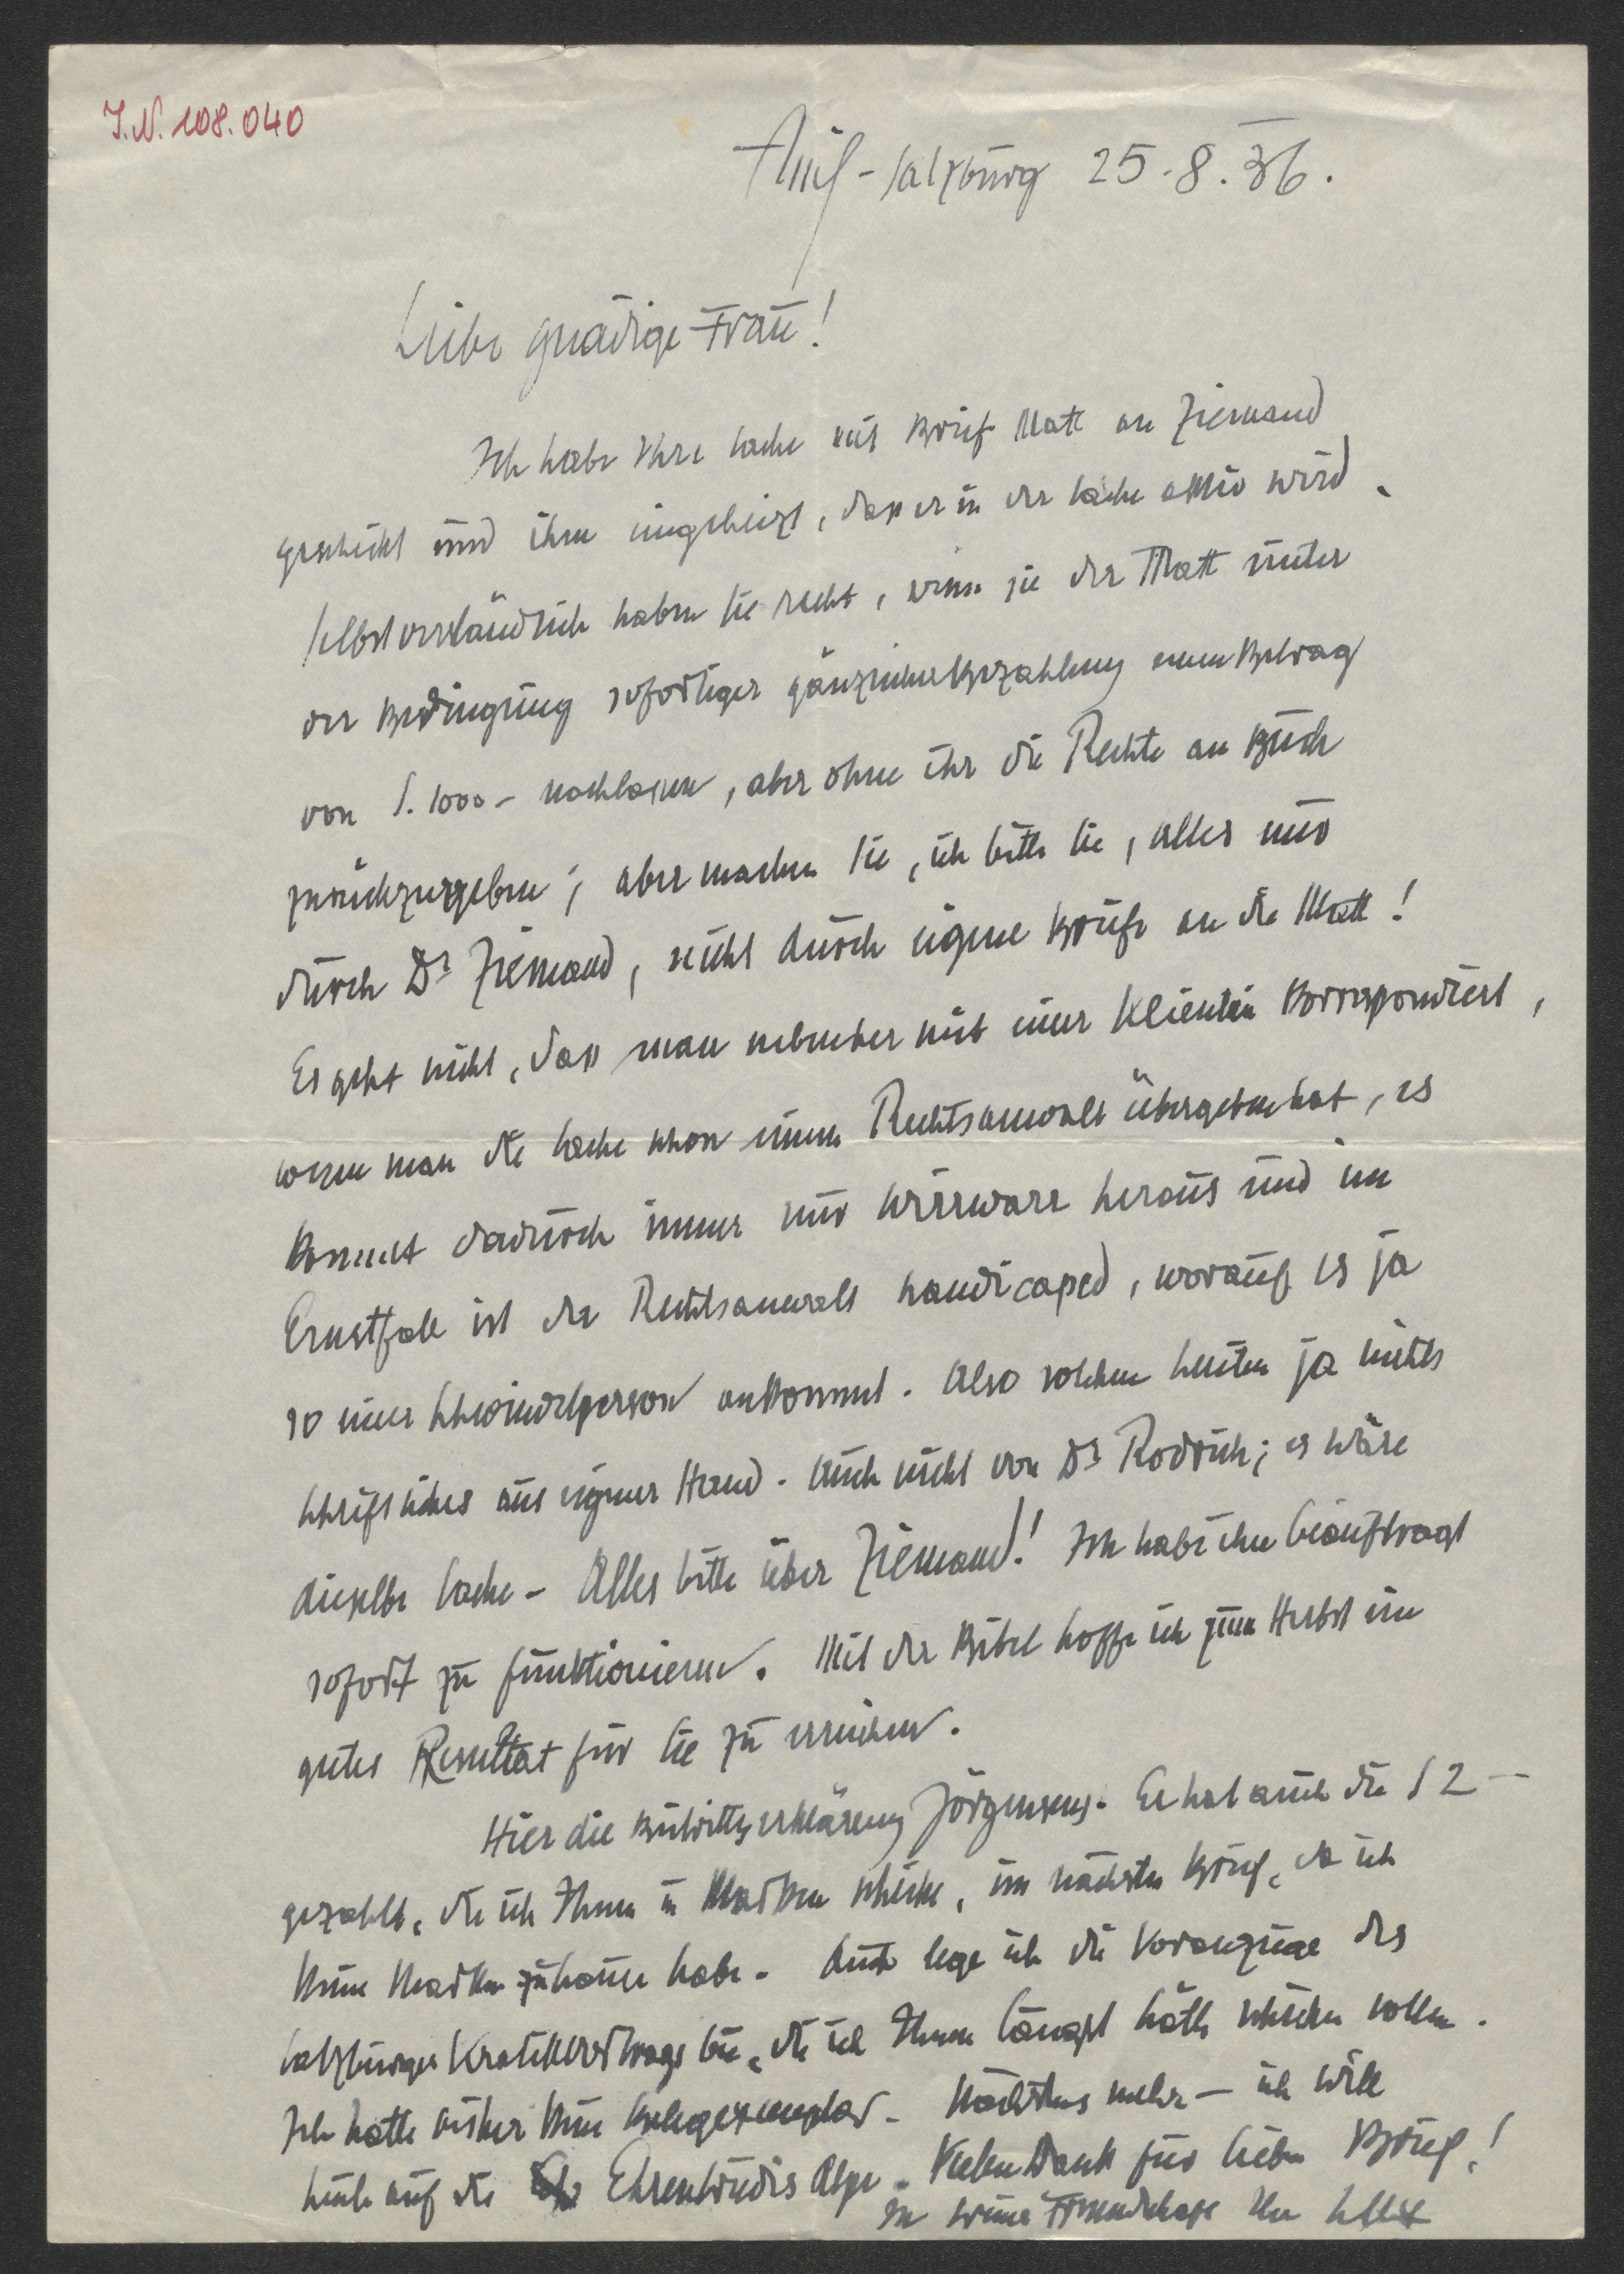 J.N. 108.040
Anif-Salzburg 25.8.36.
Liebe gnädige Frau!
Ich habe Ihre Sache mit Brief Matt an Ziemand
geschickt und ihm eingeheizt, dass er in der Sache aktiv wird.
Selbstverständlich haben Sie recht, wenn sie der Matt unter
der Bedingung sofortiger gänzlicher Bezahlung einen Betrag
von S. 1000.- nachlassen, aber ohne ihr die Rechte am Buch
zurückzugeben; aber machen Sie, ich bitte Sie, alles nur
durch Dr Ziemand, nicht durch eigene Briefe an die Matt!
Es geht nicht, dass man nebenher mit einer Klientin korrespondiert,
wenn man die Sache schon einem Rechtsanwalt übergeben hat, es
kommt dadurch immer nur Wirrwarr heraus und im
Ernstfall ist der Rechtsanwalt handicaped, worauf es ja
so einer Schwindelperson ankommt. Also solchen Leuten ja nichts
Schriftliches aus eigener Hand. Auch nicht von Dr Rodrich; es wäre
dieselbe Sache. Alles bitte über Ziemand! Ich habe ihn beauftragt
sofort zu funktionieren. Mit der Bibel hoffe ich zum Herbst ein
gutes Resultat für Sie zu erreichen.
Hier die Beitrittserklärung Jörgensens. Er hat auch die S 2 –
gezahlt, die ich Ihnen in Marken schicke, im nächsten Brief, da ich
keine Marken zuhause habe. Auch lege ich die Voranzeige des
Salzburger bei, die ich Ihnen längst hätte schicken sollen.
Ich hatte bisher kein Belegexemplar. Nächstens mehr – ich will
heute auf die Ehrentrudis Alpe. Vielen Dank für lieben Brief!
In Freundschaft Ihr